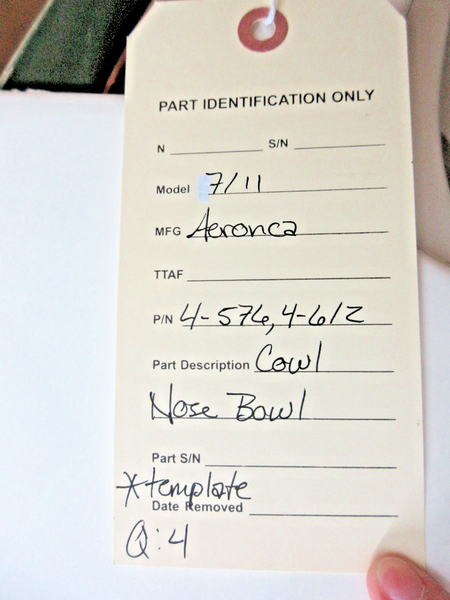 PART IDENTIFICATION ONLY
N S/N
Model 7/11
MFG Aeronca
TTAF
P/N 4-576, 4-612
Part Description Cowl
Nose Bowl
Part S/N
*template
Date Removed
Q:4